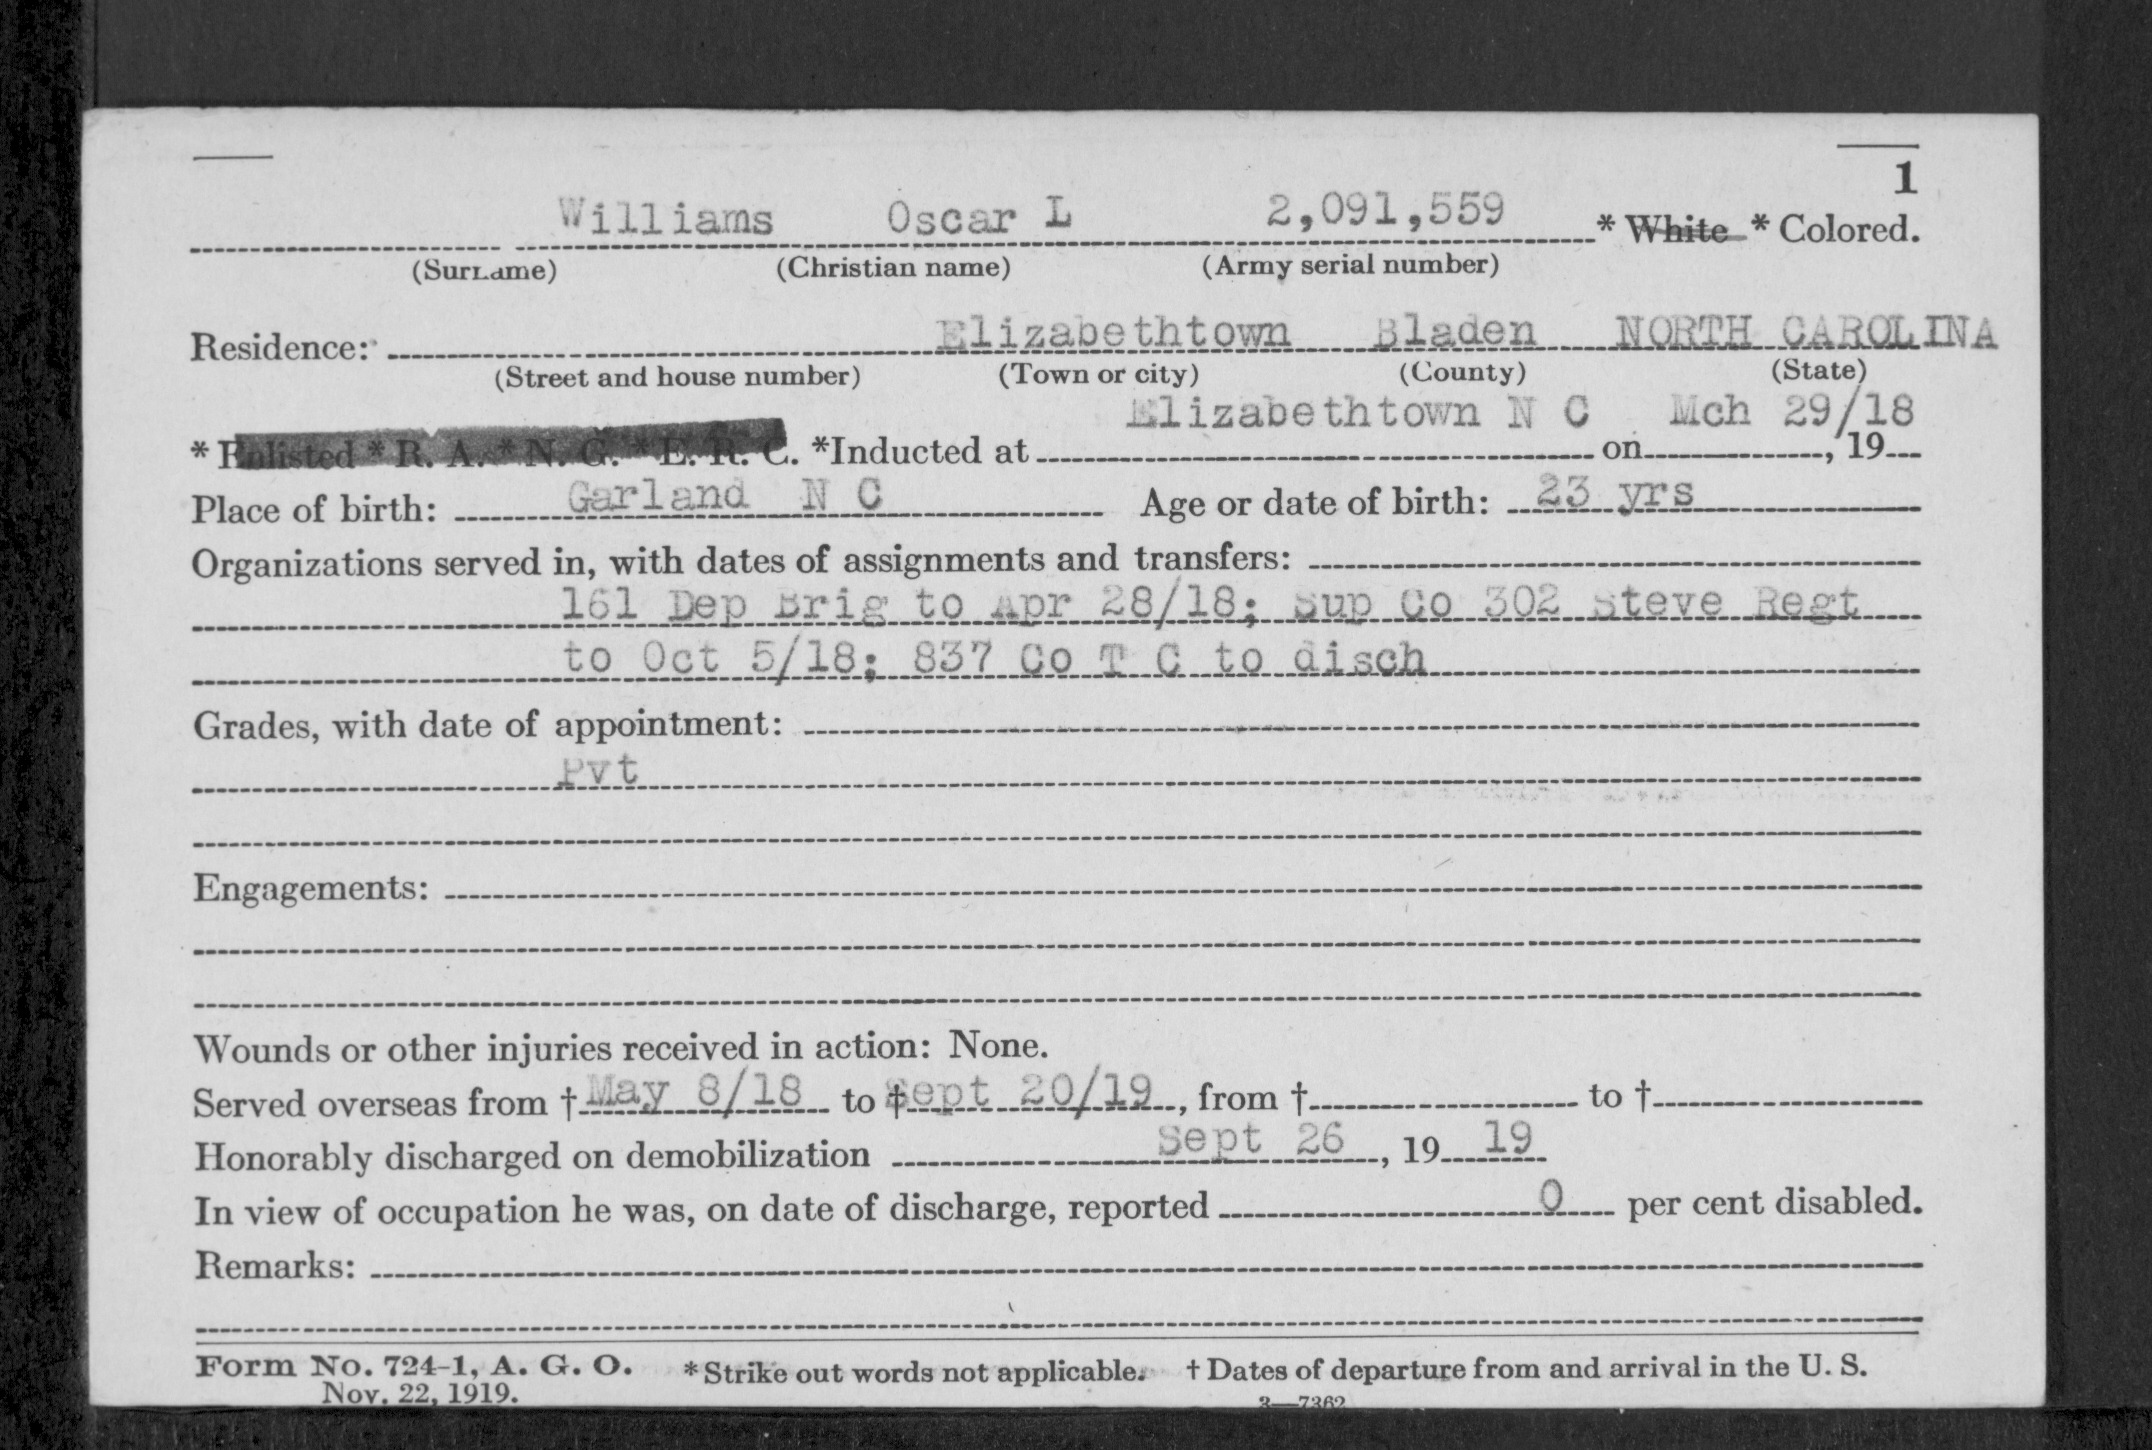 1
Williams Oscar L 2,091,559 * White * Colored.
(Surname) (Christian name) (Army serial number)
Residence: Elizabethtown Bladen NORTH CAROLINA
(Street and house number) (Town or city) (County) (State)
Elizabethtown N C Mch 29/18
* Enlisted * R. A. * N. G. * E. R. C. *Inducted at on , 19
Place of birth: Garland N C Age or date of birth: 23 yrs
Organizations served in, with dates of assignments and transfers:
161 Dep Brig to Apr 28/18; Sup Co 302 Steve Regt
to Oct 5/18; 837 Co T C to disch
Grades, with date of appointment:
Pvt
Engagements:
Wounds or other injuries received in action: None.
Served overseas from † May 8/18 to † Sept 20/19, from † to †
Honorably discharged on demobilization Sept 26, 19 19
In view of occupation he was, on date of discharge, reported 0 per cent disabled.
Remarks:
Form No. 724-1, A. G. O. * Strike out words not applicable. † Dates of departure from and arrival in the U. S.
Nov. 22, 1919. 3—7362